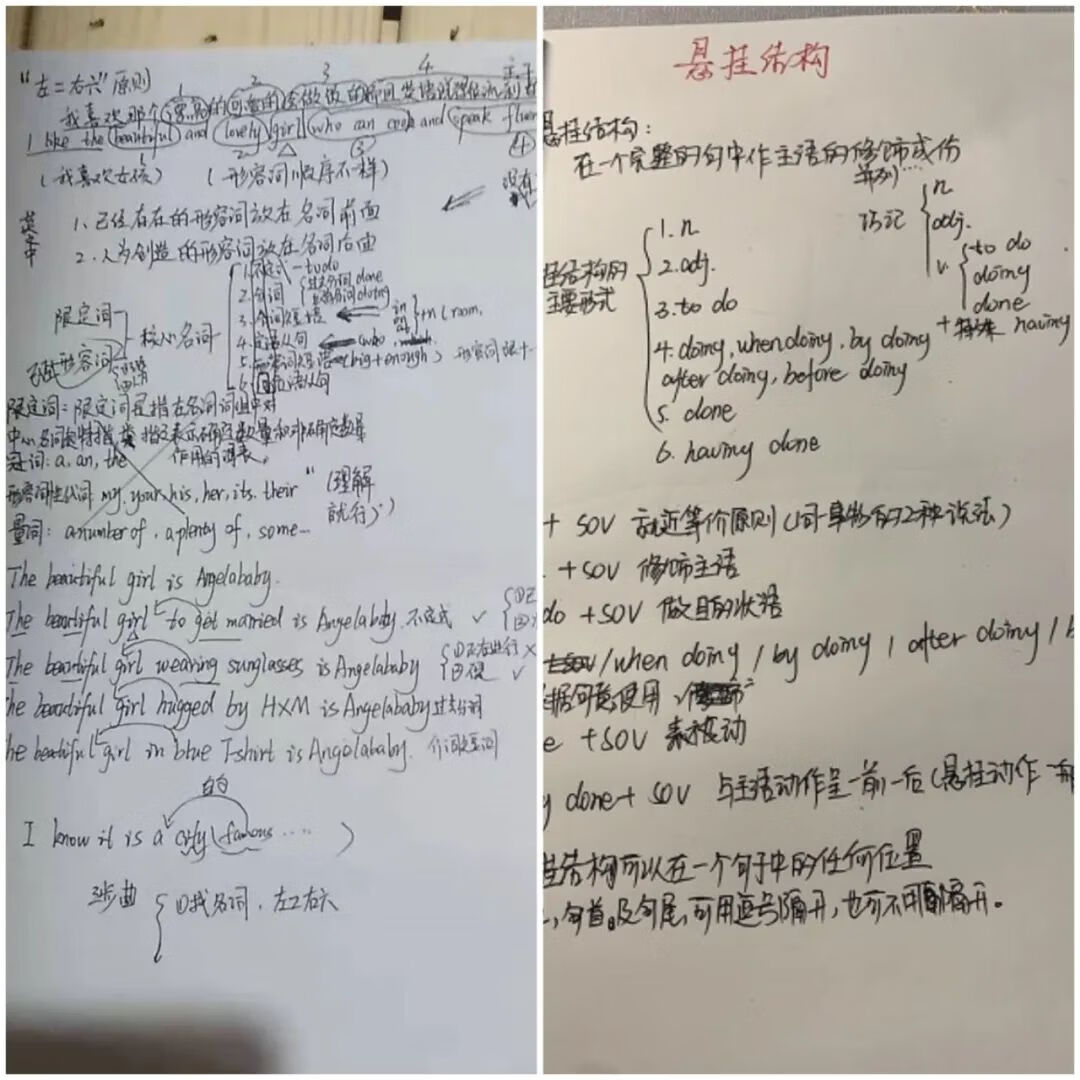 "左二右六"原则
1 2 3 4
我喜欢那个漂亮的可爱的会做饭的
I like the beautiful and lovely girl who can cook and speak
(我喜欢女孩) (形容词顺序不一样)
英文中
1、已经存在的形容词放在名词前面
2、人为创造的形容词放在名词后面
限定词
形容词
核心名词
1.不定式-to do
2.分词 过去分词 done 现在分词 doing
3.介词短语 in +n (room.
4.定语从句 (who
5.形容词短语 (big+enough)
6.同位语从句
限定词:限定词是指在名词词组中对
中心名词起特指类指及表示确定数量和非确定数量
作用的词表。
冠词:a, an, the
形容词性代词 my, your, his, her, its, their
"(理解就行)"
量词: a number of, a plenty of, some...
The beautiful girl is Angelababy.
The beautiful girl to get married is Angelababy. 不定式 ✓
The beautiful girl wearing sunglasses is Angelababy ①正在进行 ×
The beautiful girl hugged by HXM is Angelababy 过去分词
he beautiful girl in blue T-shirt is Angelababy. 介词短语
的
I know it is a city (famous ····· )
步曲
①找名词,左2右六
悬挂结构
悬挂结构:
在一个完整的句中作主语的修饰成份
并列...
巧记
n
adj.
v.
to do
doing
done
+特殊 having
挂结构的
主要形式
1. n.
2. adj.
3. to do
4. doing, when doing, by doing
after doing, before doing
5. done
6. having done
+ SOV 就近等价原则(同一事物的2种说法)
. +SOV 修饰主语
do +SOV 做目的状语
/when doing / by doing / after doing /
据句意使用
e +SOV 表被动
g done+ SOV 与主语动作呈一前一后(悬挂动作
挂结构可以在一个句子中的任何位置
,句首。及句尾,可用逗号隔开,也可不用隔开。